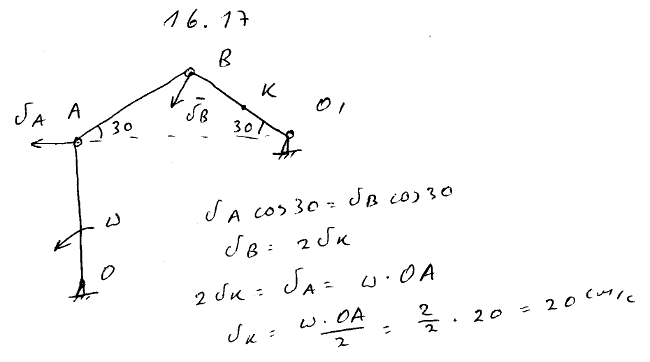 16.17
B
K
O₁
v̄B
vA
A
30
30
ω
O
vA cos30 = vB cos30
vB = 2vK
2vK = vA = ω · OA
vK = ω · OA / 2 = 2/2 · 20 = 20 см/с